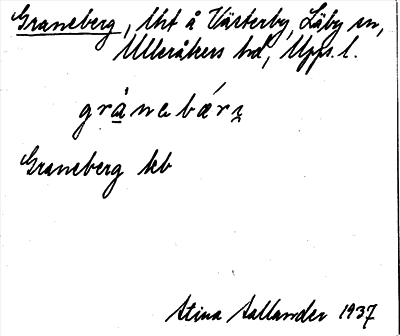 Graneberg, lht å Västerby, Läby sn,
Ulleråkers hd, Upps. l.
grànebǽrɪ
Graneberg kb
Stina Sallander 1937